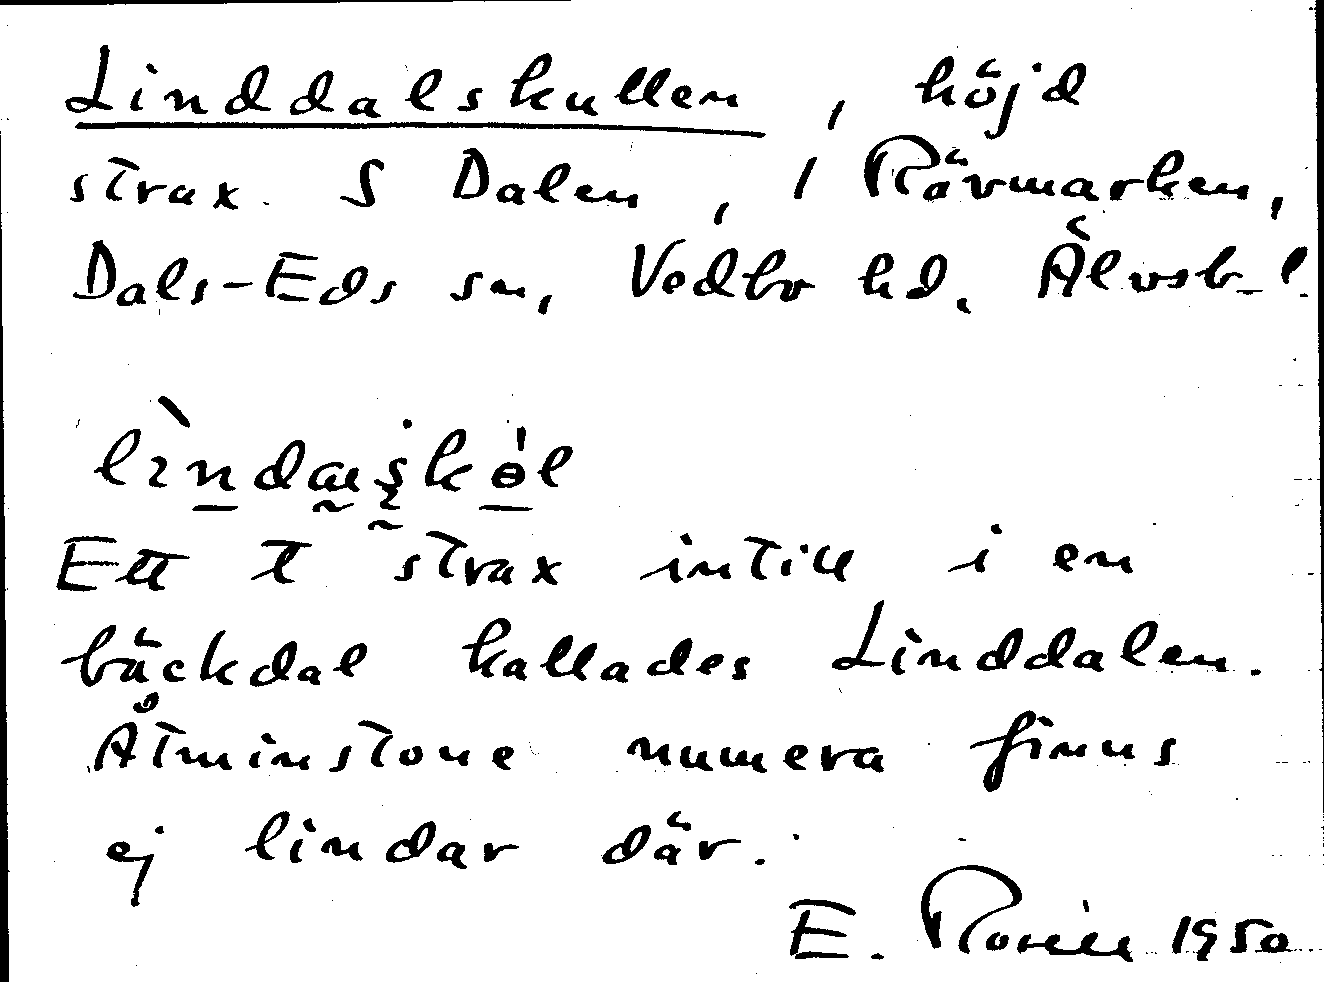 Linddalskullen, höjd
strax S Dalen, i Rävmarken,
Dals-Eds sn, Vedbo hd. Älvsb. l.
Ett t strax intill i en
bäckdal kallades Linddalen.
Åtminstone numera finns
ej lindar där.
E. 1950